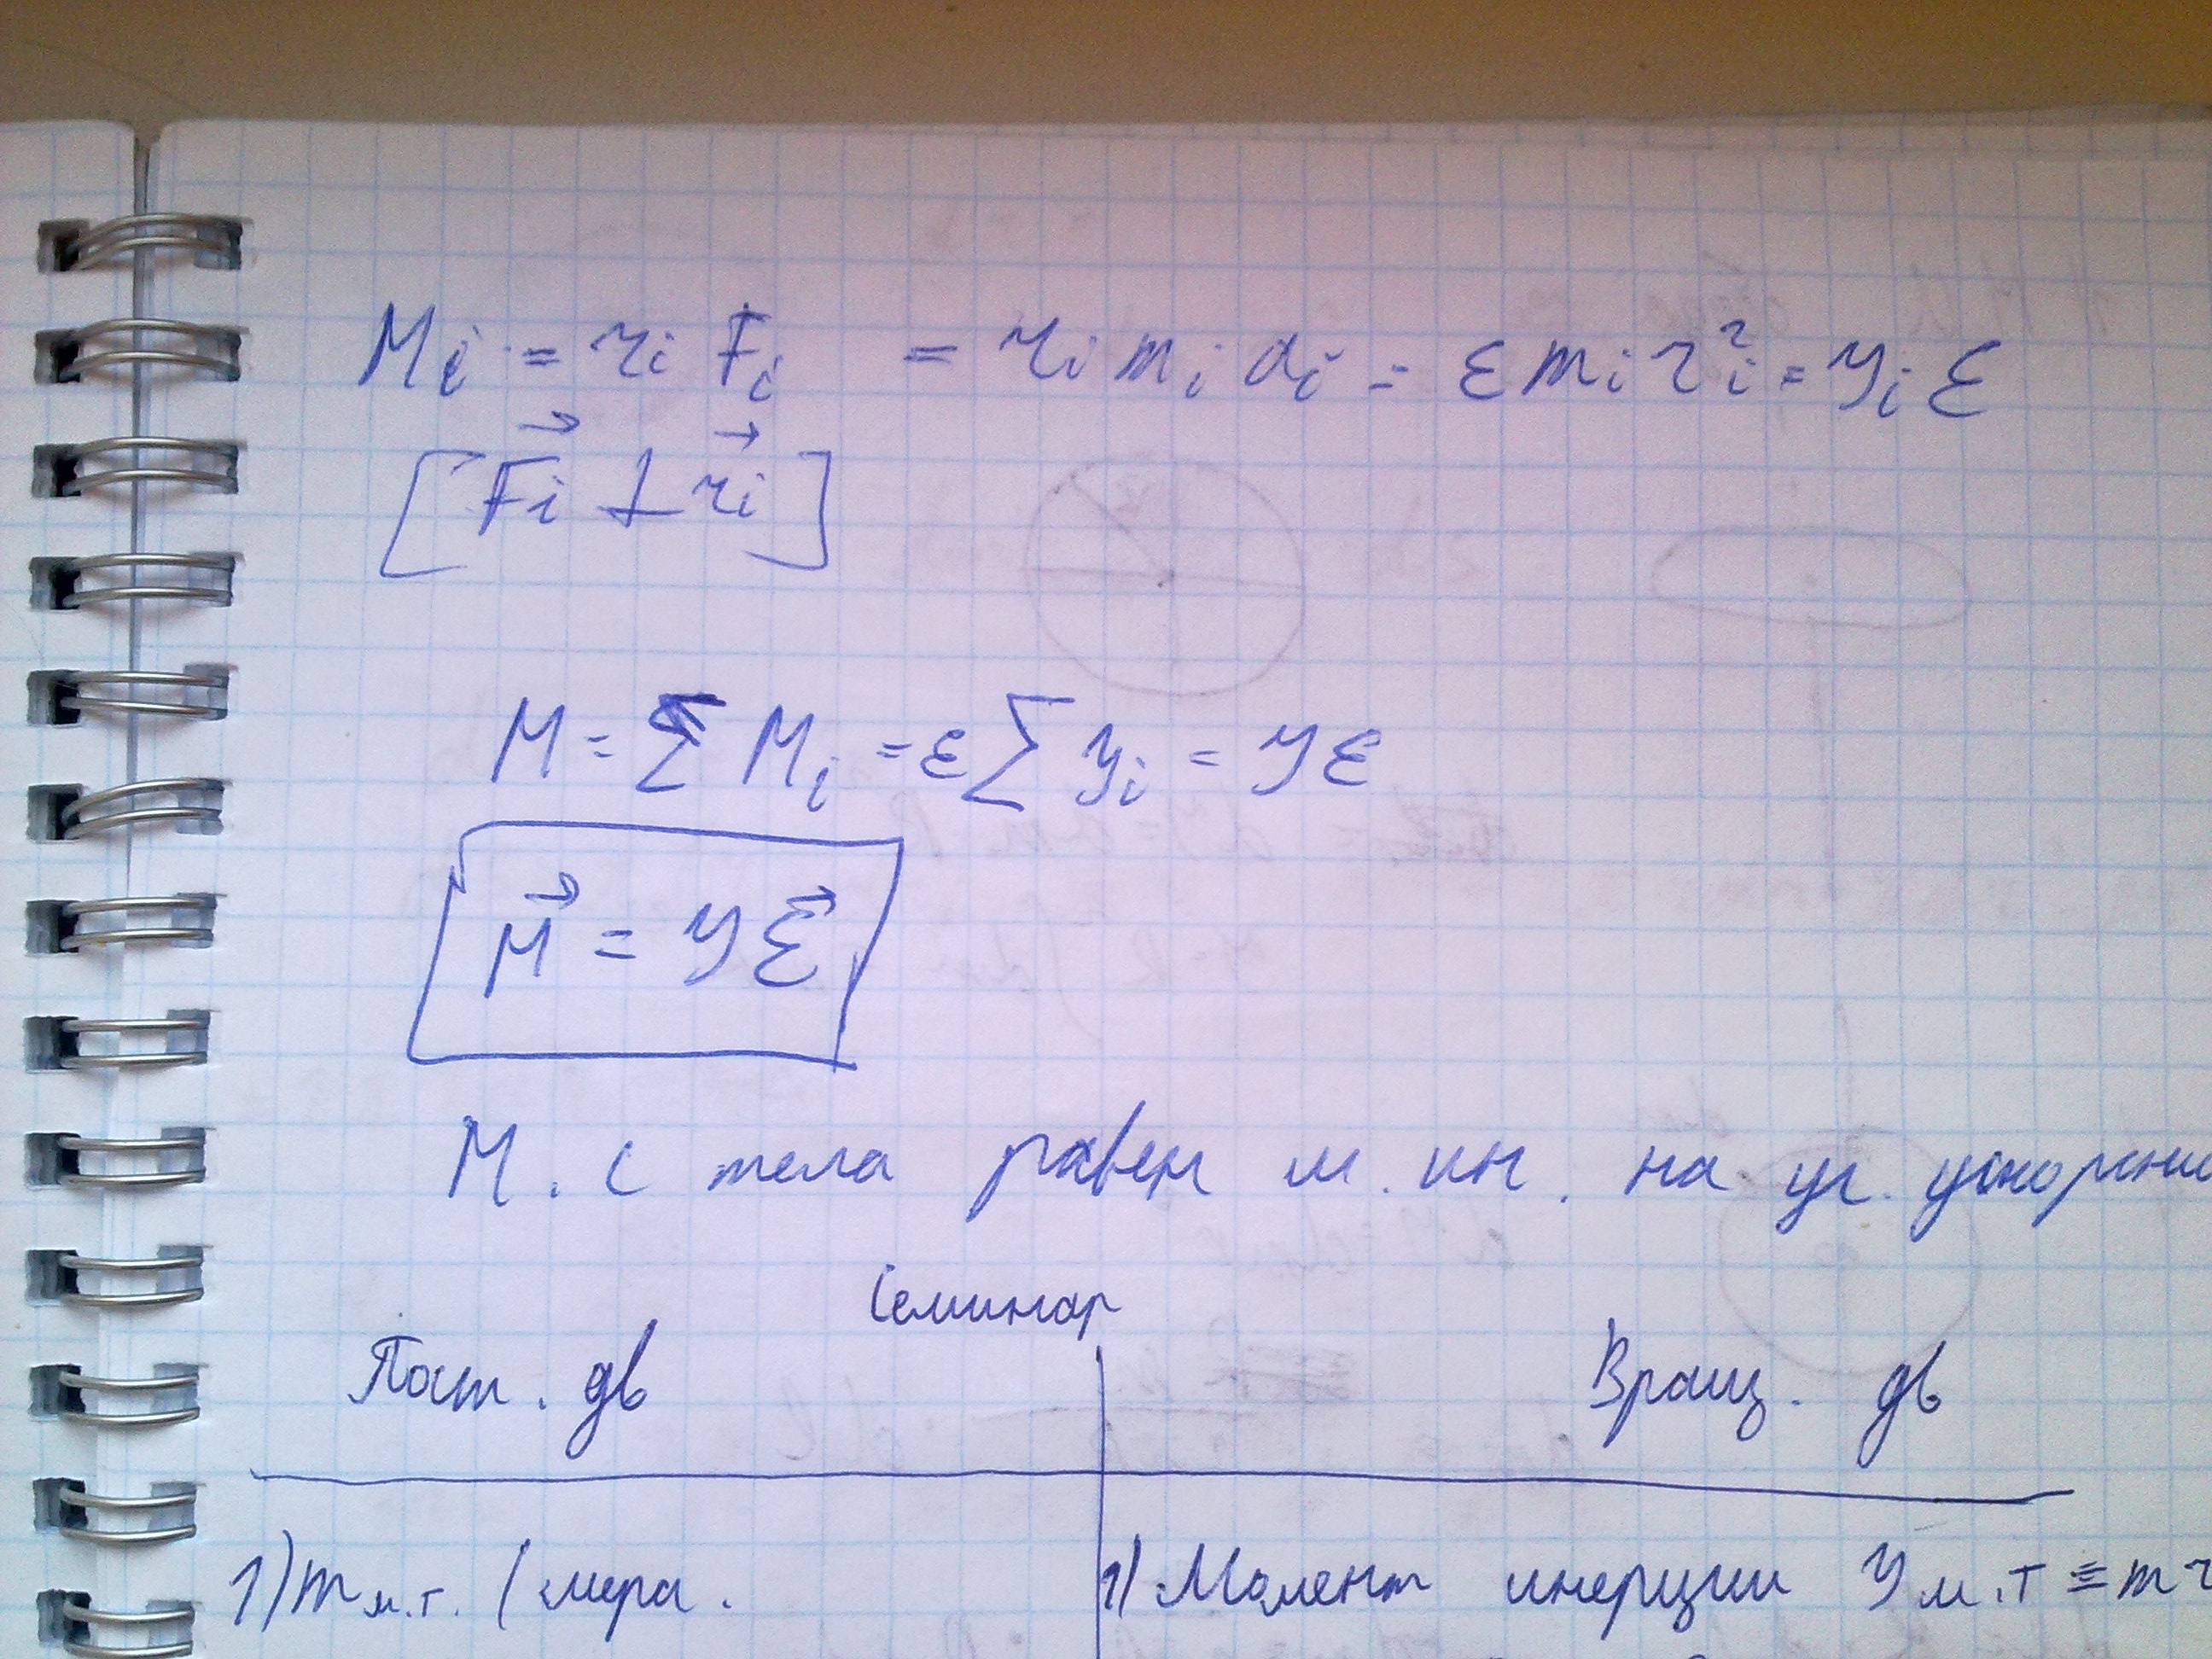 Mᵢ = rᵢ Fᵢ = rᵢ mᵢ aᵢ = ε mᵢ rᵢ² = Yᵢ ε
[F⃗ᵢ ⊥ r⃗ᵢ]
M = Σ Mᵢ = ε Σ Yᵢ = Y ε
M⃗ = Y ε⃗
М. с тела равен м. ин. на уг. ускорение
Семинар
Пост. дв Вращ. дв
1) m м.т. (мера. 1) Момент инерции Y м.т ≡ m r